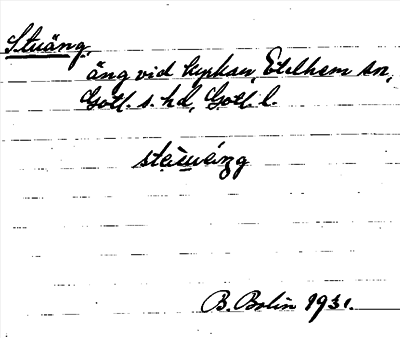 Stuäng,
äng vid kyrkan, Etelhem sn,
Gotl. s. hd, Gotl. l.
B. Bolin 1931.